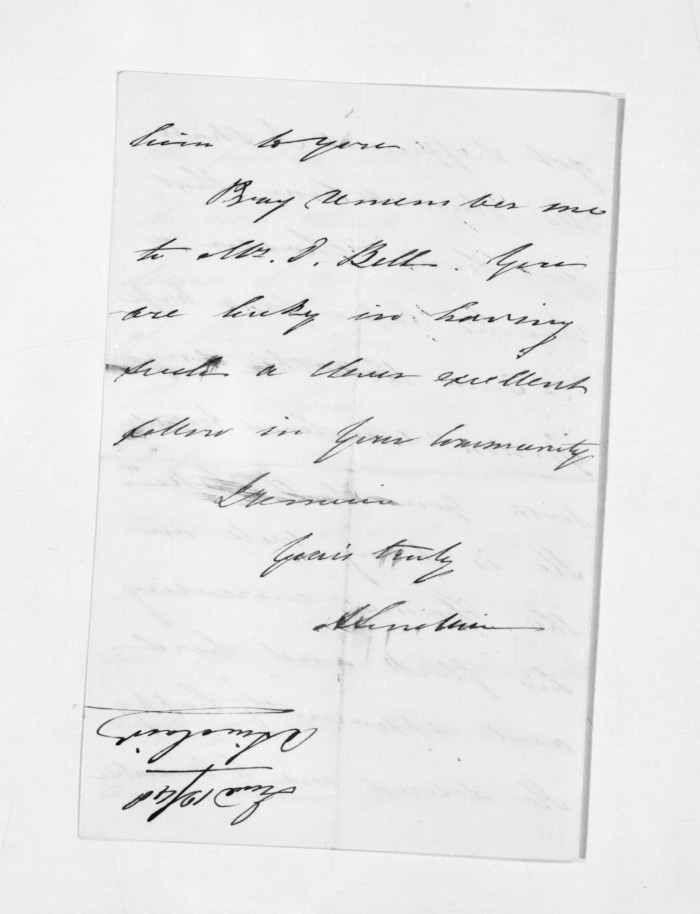 him to you
Pray remember me
to Mr. D. Bell. You
are lucky in having
such a clever excellent
fellow in your Community
I remain
Yours truly
A Sinclair
A Sinclair